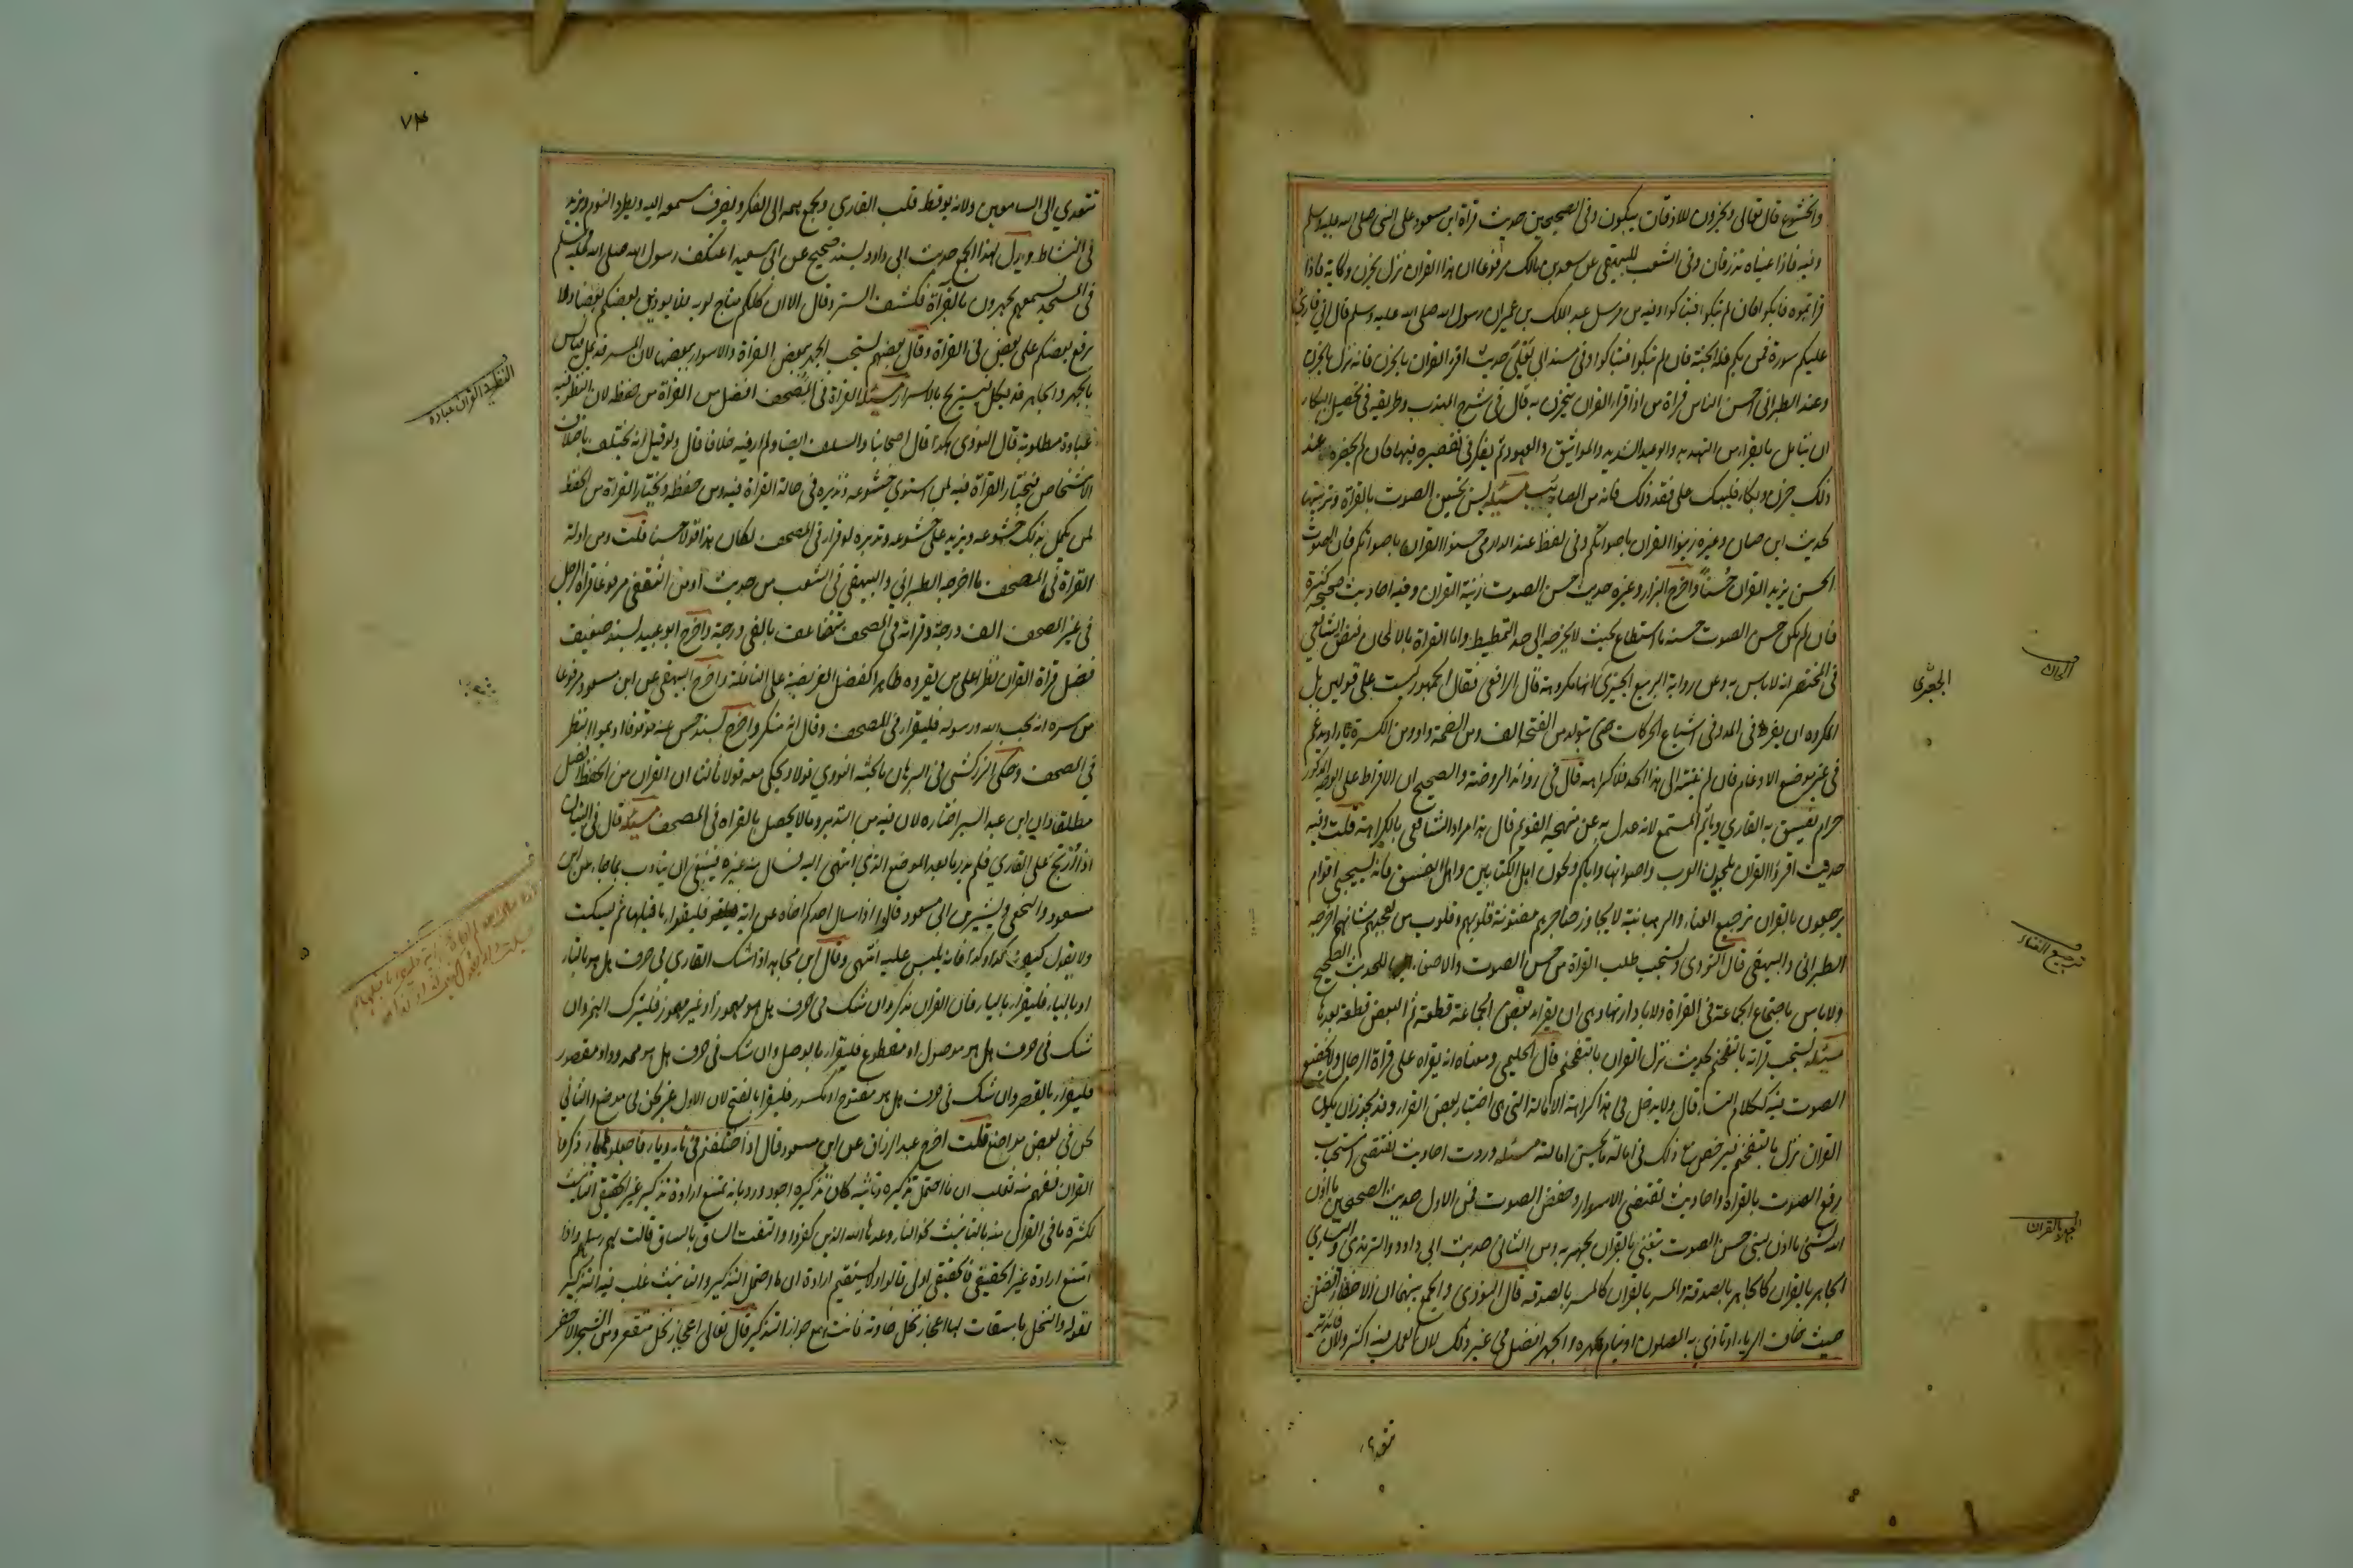 والخشوع قال تعالى ويخرون للاذقان يبكون وفى الصحيحين حديث قراة ابن مسعود على النبى صلى الله عليه وسلم
وفيه فاذا عيناه تذرفان وفى الشعب للبيهقى عن سعد بن مالك مرفوعا ان هذا القران نزل بحزن وكابة فاذا
قراتموه فابكوا فان لم تبكوا فتباكوا وفيه من مرسل عبد الملك بن عمير ان رسول الله صلى الله عليه وسلم قال انى قارئ
عليكم سورة فمن بكى فله الجنة فان لم تبكوا فتباكوا وفى مسند ابى يعلى حديث اقرءوا القران بالحزن فانه نزل بالحزن
وعند الطبرانى احسن الناس قراة من اذا قرا القران يتحزن به قال فى شرح المهذب وطريقه فى تحصيل البكاء
ان يتامل ما يقرا من التهديد والوعيد الشديد والمواثيق والعهود ثم يفكر فى تقصيره فيها فان لم يحضره عند
ذلك حزن وبكاء فليبك على فقد ذلك فانه من المصائب مسئلة يسن تحسين الصوت بالقراة وتزيينها
لحديث ابن حبان وغيره زينوا القران باصواتكم وفى لفظ عند الدارمى حسنوا القران باصواتكم فان الصوت
الحسن يزيد القران حسنا واخرج البزار وغيره حديث حسن الصوت زينة القران وفيه احاديث صحيحة كثيرة
فان لم يكن حسن الصوت حسنه ما استطاع بحيث لا يخرج الى حد التمطيط واما القراة بالالحان فنص الشافعى
فى المختصر انه لا باس به وعن رواية الربيع الجيزى انها مكروهة قال الرافعى فقال الجمهور ليست على قولين بل
المكروه ان يفرط فى المد وفى اشباع الحركات حتى يتولد من الفتحة الف ومن الضمة واو ومن الكسرة ياء او يدغم
فى غير موضع الادغام فان لم ينته الى هذا الحد فلا كراهة قال فى زوائد الروضة والصحيح ان الافراط على الوجه المذكور
حرام يفسق به القارى وياثم المستمع لانه عدل به عن منهجه القويم قال وهذا مراد الشافعى بالكراهة قلت وفيه
حديث اقرءوا القران بلحون العرب واصواتها واياكم ولحون اهل الكتابين واهل الفسق فانه سيجيى اقوام
يرجعون بالقران ترجيع الغناء والرهبانية لا يجاوز حناجرهم مفتونة قلوبهم وقلوب من يعجبهم شانهم اخرجه
الطبرانى والبيهقى قال النووى ويستحب طلب القراة من حسن الصوت والاصغاء اليها للحديث الصحيح
ولا باس باجتماع الجماعة فى القراة ولا بادارتها وهى ان يقرا بعض الجماعة قطعة ثم البعض قطعة بعدها
مسئلة يستحب قراته بالتفخيم لحديث نزل القران بالتفخيم قال الحليمى ومعناه انه يقراه على قراة الرجال ولا يخضع
الصوت فيه ككلام النساء قال ولا يدخل فى هذا كراهة الامالة التى هى اختيار بعض القراء وقد يجوز ان يكون
القران نزل بالتفخيم فرخص مع ذلك فى امالة ما يحسن امالته مسئلة وردت احاديث تقتضى استحباب
رفع الصوت بالقراة واحاديث تقتضى الاسرار وخفض الصوت فمن الاول حديث الصحيحين ما اذن
الله لشئ ما اذن لنبى حسن الصوت يتغنى بالقران يجهر به ومن الثانى حديث ابى داود والترمذى والنسائى
الجاهر بالقران كالجاهر بالصدقة والمسر بالقران كالمسر بالصدقة قال النووى والجمع بينهما ان الاخفاء افضل
حيث خاف الرياء او تاذى به المصلون او نيام بجهره والجهر افضل فى غير ذلك لان العمل فيه اكثر ولان فائدته
تتعدى
الجيزى
ترجيع الغناء
الجهر بالقران
٧٤
تتعدى الى السامعين ولانه يوقظ قلب القارى ويجمع همه الى الفكر ويصرف سمعه اليه ويطرد النوم ويزيد
فى النشاط ويدل لهذا الجمع حديث ابى داود بسند صحيح عن ابى سعيد اعتكف رسول الله صلى الله عليه وسلم
فى المسجد فسمعهم يجهرون بالقراة فكشف الستر وقال الا ان كلكم مناج لربه فلا يوذين بعضكم بعضا ولا
يرفع بعضكم على بعض فى القراة وقال بعضهم يستحب الجهر ببعض القراة والاسرار ببعضها لان المسر قد يمل فيانس
بالجهر والجاهر قد يكل فيستريح بالاسرار مسئلة القراة فى المصحف افضل من القراة من حفظه لان النظر فيه
عبادة مطلوبة قال النووى هكذا قال اصحابنا والسلف ايضا ولم ار فيه خلافا قال ولو قيل انه يختلف باختلاف
الاشخاص فيختار القراة فيه لمن استوى خشوعه وتدبره فى حالة القراة فيه ومن حفظه ويختار القراة من الحفظ
لمن يكمل بذلك خشوعه ويزيد على خشوعه وتدبره لو قرا فى المصحف لكان هذا قولا حسنا قلت ومن ادلة
القراة فى المصحف ما اخرجه الطبرانى والبيهقى فى الشعب من حديث اوس الثقفى مرفوعا قراة الرجل
فى غير المصحف الف درجة وقراته فى المصحف تضاعف بالفى درجة واخرج ابو عبيد بسند ضعيف
فضل قراة القران نظرا على من يقروه ظاهرا كفضل الفريضة على النافلة واخرج البيهقى عن ابن مسعود مرفوعا
من سره ان يحب الله ورسوله فليقرا فى المصحف وقال انه منكر واخرج بسند حسن عنه موقوفا اديموا النظر
فى المصحف وحكى الزركشى فى البرهان ما بحثه النووى قولا وحكى معه قولا ثالثا ان القران من الحفظ افضل
مطلقا وان ابن عبد السلام اختاره لان فيه من التدبر ما لا يحصل بالقراة فى المصحف مسئلة قال فى التبيان
اذا ارتج على القارى فلم يدر ما بعد الموضع الذى انتهى اليه فسال عنه غيره فينبغى ان يتادب بما جاء عن ابن
مسعود والنخعى وبشير بن ابى مسعود قالوا اذا سال احدكم اخاه عن اية فليقرا ما قبلها ثم يسكت
ولا يقول كيف كذا وكذا فانه يلبس عليه انتهى وقال ابن مجاهد اذا شك القارى فى حرف هل هو بالتاء
او بالياء فليقراه بالياء فان القران مذكر وان شك فى حرف هل هو مهموز او غير مهموز فليترك الهمز وان
شك فى حرف هل هو موصول او مقطوع فليقرا بالوصل وان شك فى حرف هل هو ممدود او مقصور
فليقرا بالقصر وان شك فى حرف هل هو مفتوح او مكسور فليقرا بالفتح لان الاول غير لحن فى موضع والثانى
لحن فى بعض مواضع قلت اخرج عبد الرزاق عن ابن مسعود قال اذا اختلفتم فى تاء وياء فاجعلوها ياء ذكروا
القران ففهم منه ثعلب ان ما احتمل تذكيره وتانيثه كان تذكيره اجود ورد بانه يمتنع ارادة تذكير غير الحقيقى التانيث
لكثرة ما فى القران منه بالتانيث نحو النار وعدها الله الذين كفروا والتفت الساق بالساق قالت لهم رسلهم واذا
امتنع ارادة غير الحقيقى فالحقيقى اولى قالوا ولا يستقيم ارادة ان ما احتمل التذكير والتانيث غلب فيه التذكير
لقوله والنخل باسقات لها اعجاز نخل خاوية فانث مع جواز التذكير قال تعالى اعجاز نخل منقعر ومن الشجر الاخضر
النظر فى القران عبادة